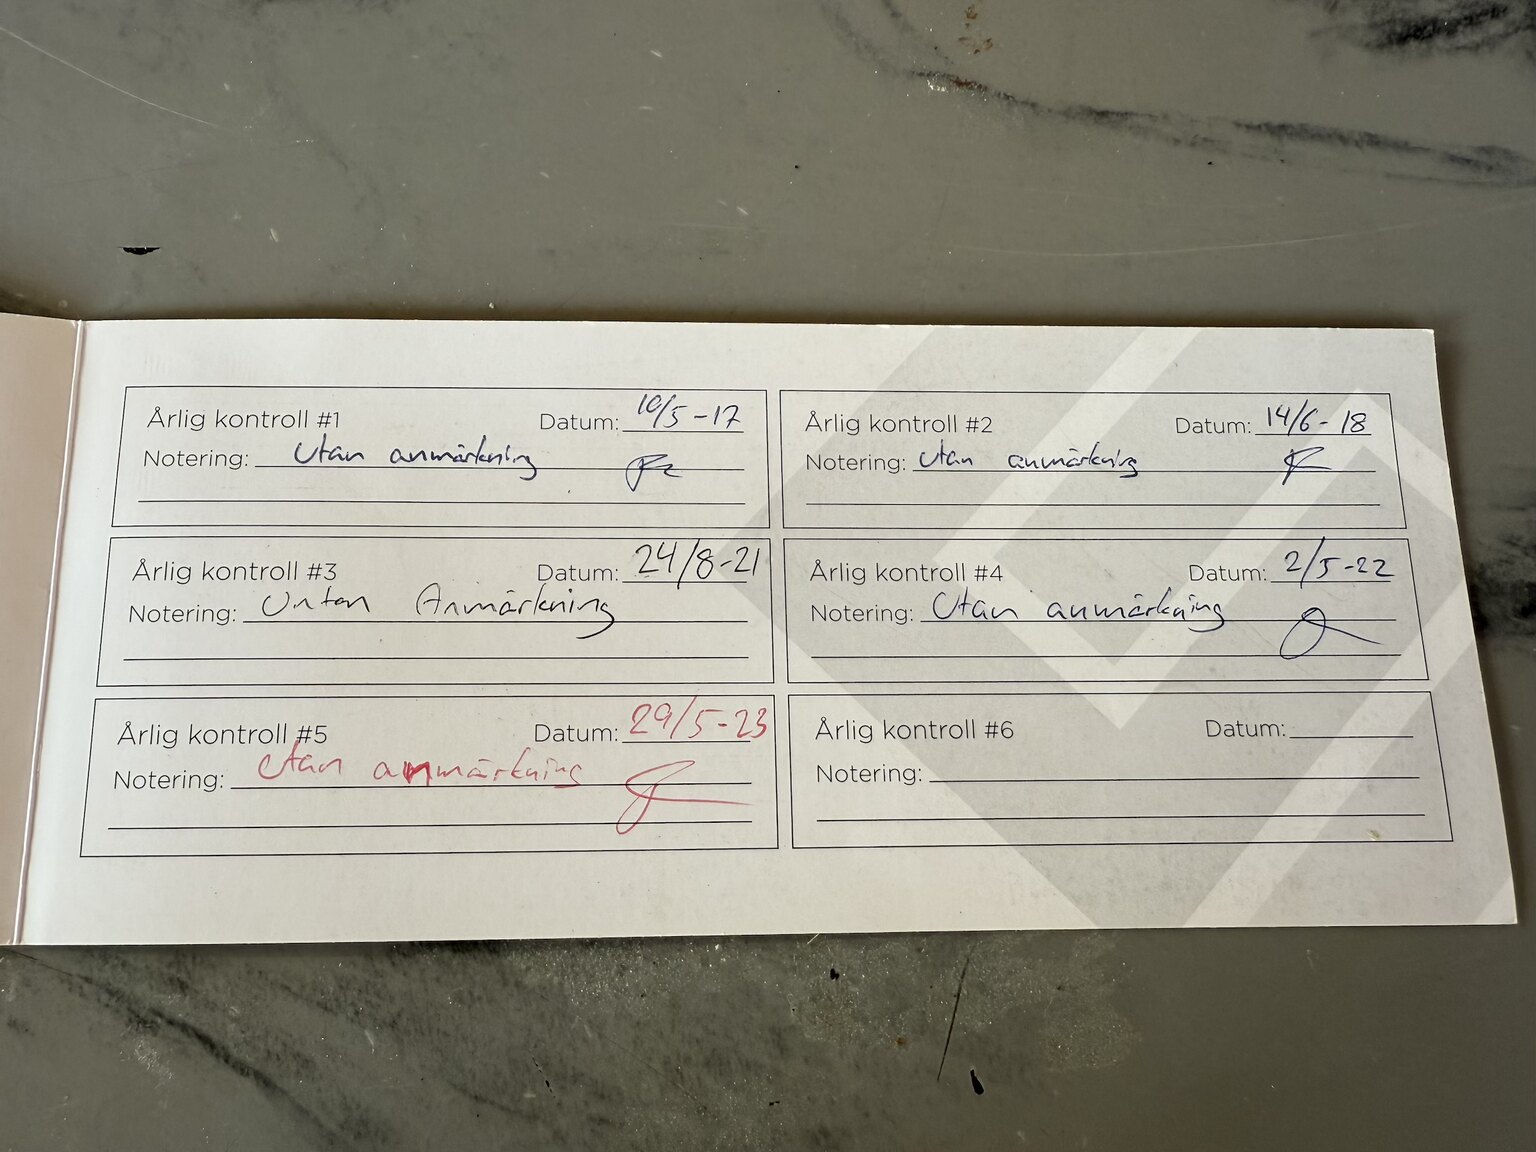 Årlig kontroll #1 Datum: 10/5-17
Notering: Utan anmärkning
Årlig kontroll #2 Datum: 14/6-18
Notering: Utan anmärkning
Årlig kontroll #3 Datum: 24/8-21
Notering: Untan Anmärkning
Årlig kontroll #4 Datum: 2/5-22
Notering: Utan anmärkning
Årlig kontroll #5 Datum: 29/5-23
Notering: Utan anmärkning
Årlig kontroll #6 Datum:
Notering: